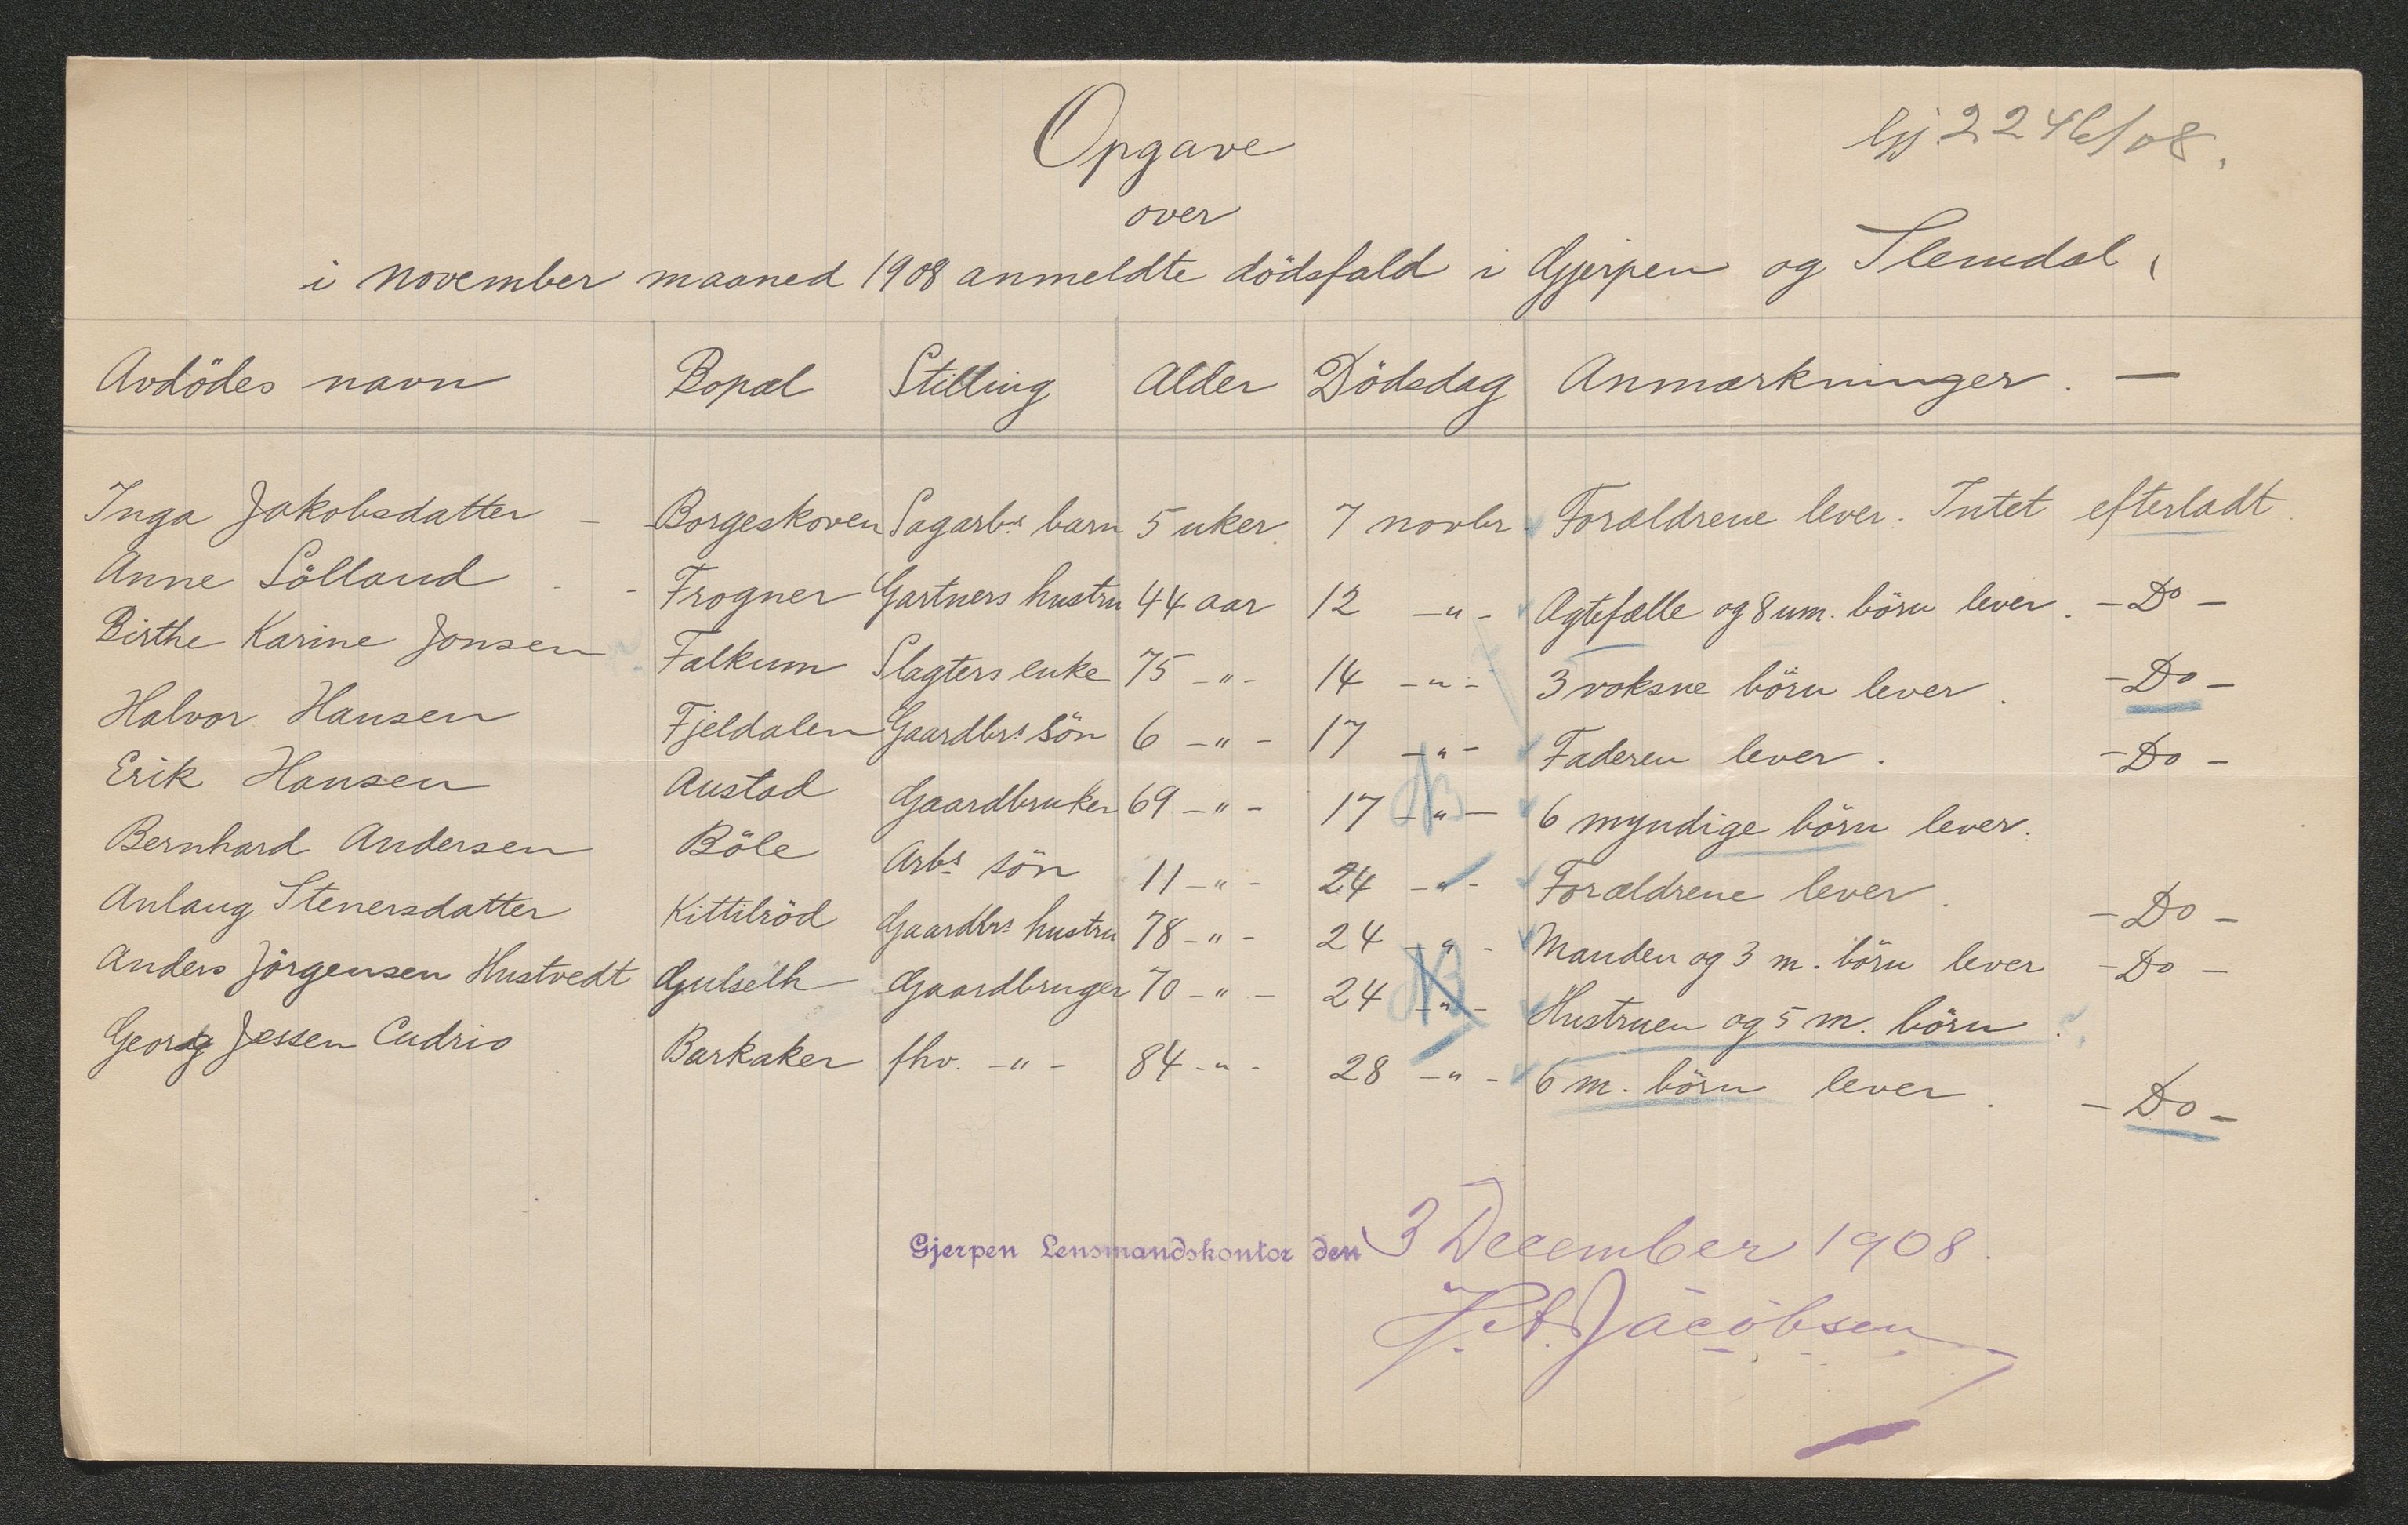 Opgave
2246/08.
over
i November maaned 1908 anmeldte dödsfald i Gjerpen og Slemdal,
Avdödes navn Bopæl Stilling Alder Dödsdag Anmærkninger. —
Inga Jakobsdatter - Borgeskoven Sagarbs. barn 5 uker. 7 novbr. Forældrene lever. Intet efterladt.
Anne Sölland - Frogner Gartners hustru 44 aar 12 -"- Ægtefælle og 8 um. börn lever. - Do -
Birthe Karine Jonsen Falkum Slagters enke 75 -"- 14 -"- 3 voksne börn lever. - Do -
Halvor Hansen Fjeldalen Gaardbrs. sön 6 -"- 17 -"- Faderen lever. - Do -
Erik Hansen Austad Gaardbruker 69 -"- 17 -"- 6 myndige börn lever.
Bernhard Andersen Böle Arbs. sön 11 -"- 24 -"- Forældrene lever. - Do -
Anlaug Stenersdatter Kittilröd Gaardbrs. hustru 78 -"- 24 -"- Manden og 3 m. börn lever - Do -
Anders Jörgensen Hustvedt Gulseth Gaardbruger 70 -"- 24 -"- Hustruen og 5 m. börn.
Georg Jessen Cudrio Barkaker fhv. -"- 84 -"- 28 -"- 6 m. börn lever. - Do -
NB
NB
Gjerpen Lensmandskontor den 3 December 1908.
Jacobsen